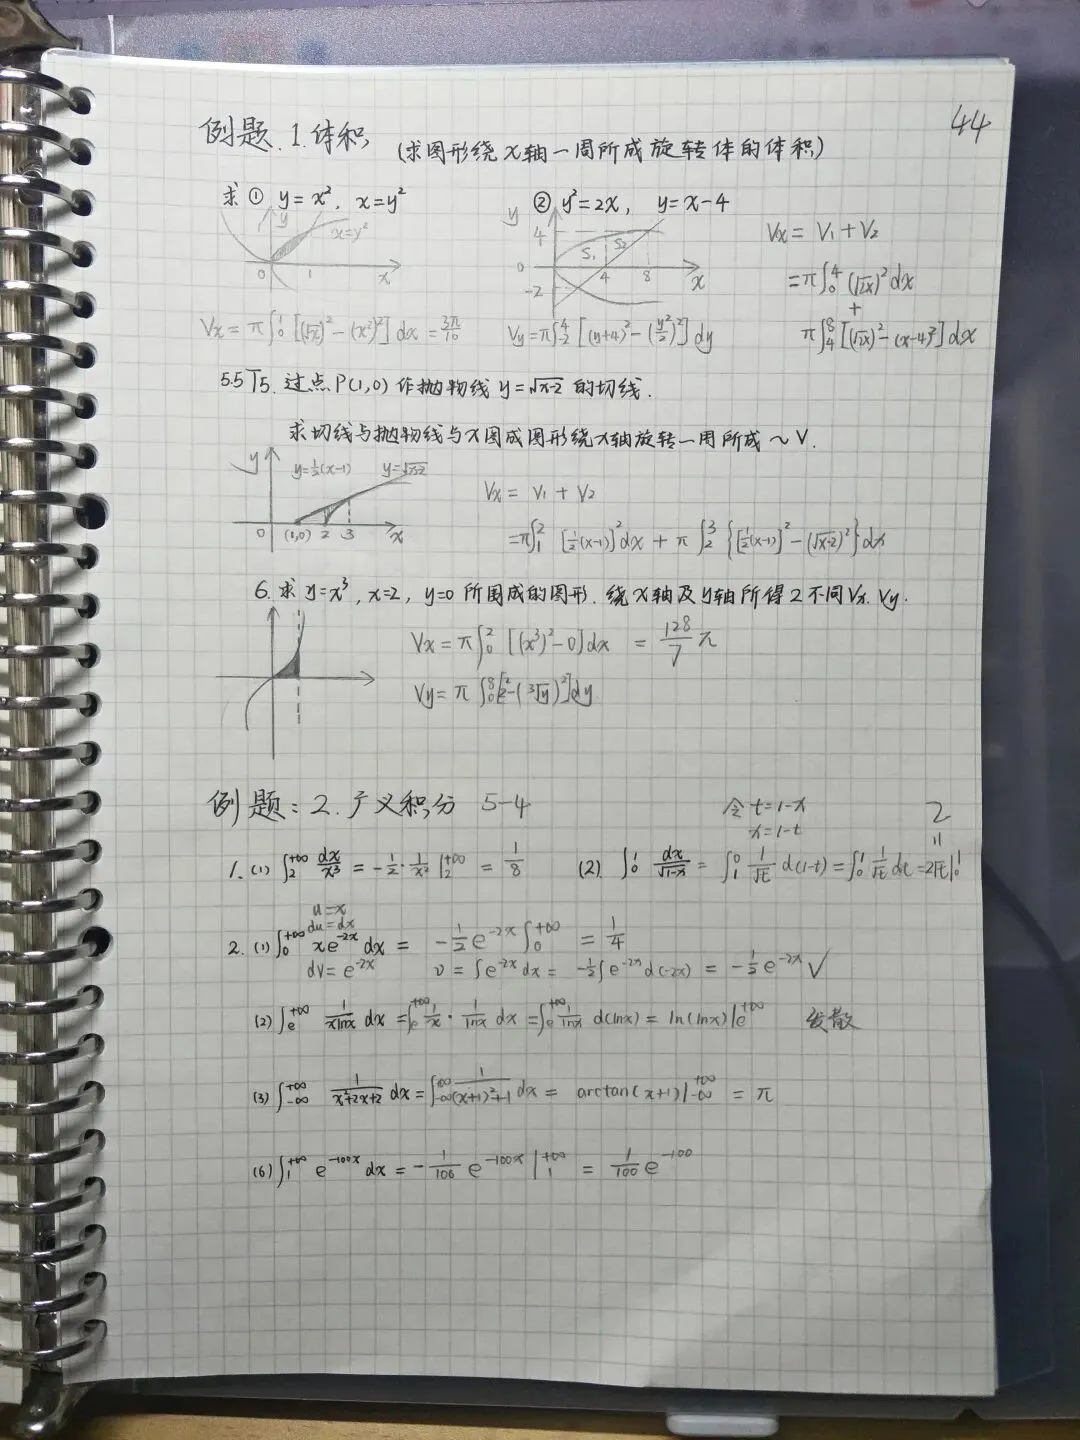 44
例题.1.体积 (求图形绕x轴一周所成旋转体的体积)
求 ① y=x², x=y²
y
x=y²
0 1 x
Vx = π∫₀¹ [(√x)²-(x²)²] dx = 3π/10
② y²=2x, y=x-4
y
4
S₁ S₂
0 4 8 x
-2
Vy=π∫₋₂⁴ [(y+4)²-(y²/2)²] dy
Vx = V₁+V₂
=π∫₀⁴ (√2x)² dx
+
π∫₄⁸ [(√2x)²-(x-4)²] dx
5.5 T5. 过点P(1,0) 作抛物线 y=√x-2 的切线.
求切线与抛物线与x围成图形绕x轴旋转一周所成~V.
y y=½(x-1) y=√x-2
0 (1,0) 2 3 x
Vx = V₁ + V₂
=π∫₁² [½(x-1)]² dx + π∫₂³ {[½(x-1)]²-(√x-2)²} dx
6. 求 y=x³, x=2, y=0 所围成的图形. 绕x轴及y轴所得2不同Vx. Vy.
Vx = π∫₀² [(x³)²-0]dx = 128/7 π
Vy = π∫₀⁸[2²-(³√y)²]dy
例题: 2. 广义积分 5-4
令 t=1-x
x=1-t
2
=
1. (1) ∫₂^{+∞} dx/x³ = -1/2·1/x² |₂^{+∞} = 1/8 (2). ∫₀¹ dx/√1-x = ∫₁⁰ 1/√t d(1-t) = ∫₀¹ 1/√t dt = 2√t|₀¹
u=x
du=dx
2. (1) ∫₀^{+∞} xe^{-2x} dx = -1/2 e^{-2x} ∫₀^{+∞} = 1/4
dv = e^{-2x} v = ∫e^{-2x} dx = -½∫e^{-2x} d(-2x) = -½e^{-2x} √
(2) ∫ₑ^{+∞} 1/xlnx dx = ∫ₑ^{+∞} 1/x · 1/lnx dx = ∫ₑ^{+∞} 1/lnx d(lnx) = ln(lnx)|ₑ^{+∞} 发散
(3) ∫_{-∞}^{+∞} 1/x²+2x+2 dx = ∫_{-∞}^{+∞} 1/(x+1)²+1 dx = arctan(x+1)|_{-∞}^{+∞} = π
(6) ∫₁^{+∞} e^{-100x} dx = -1/100 e^{-100x} |₁^{+∞} = 1/100 e^{-100}